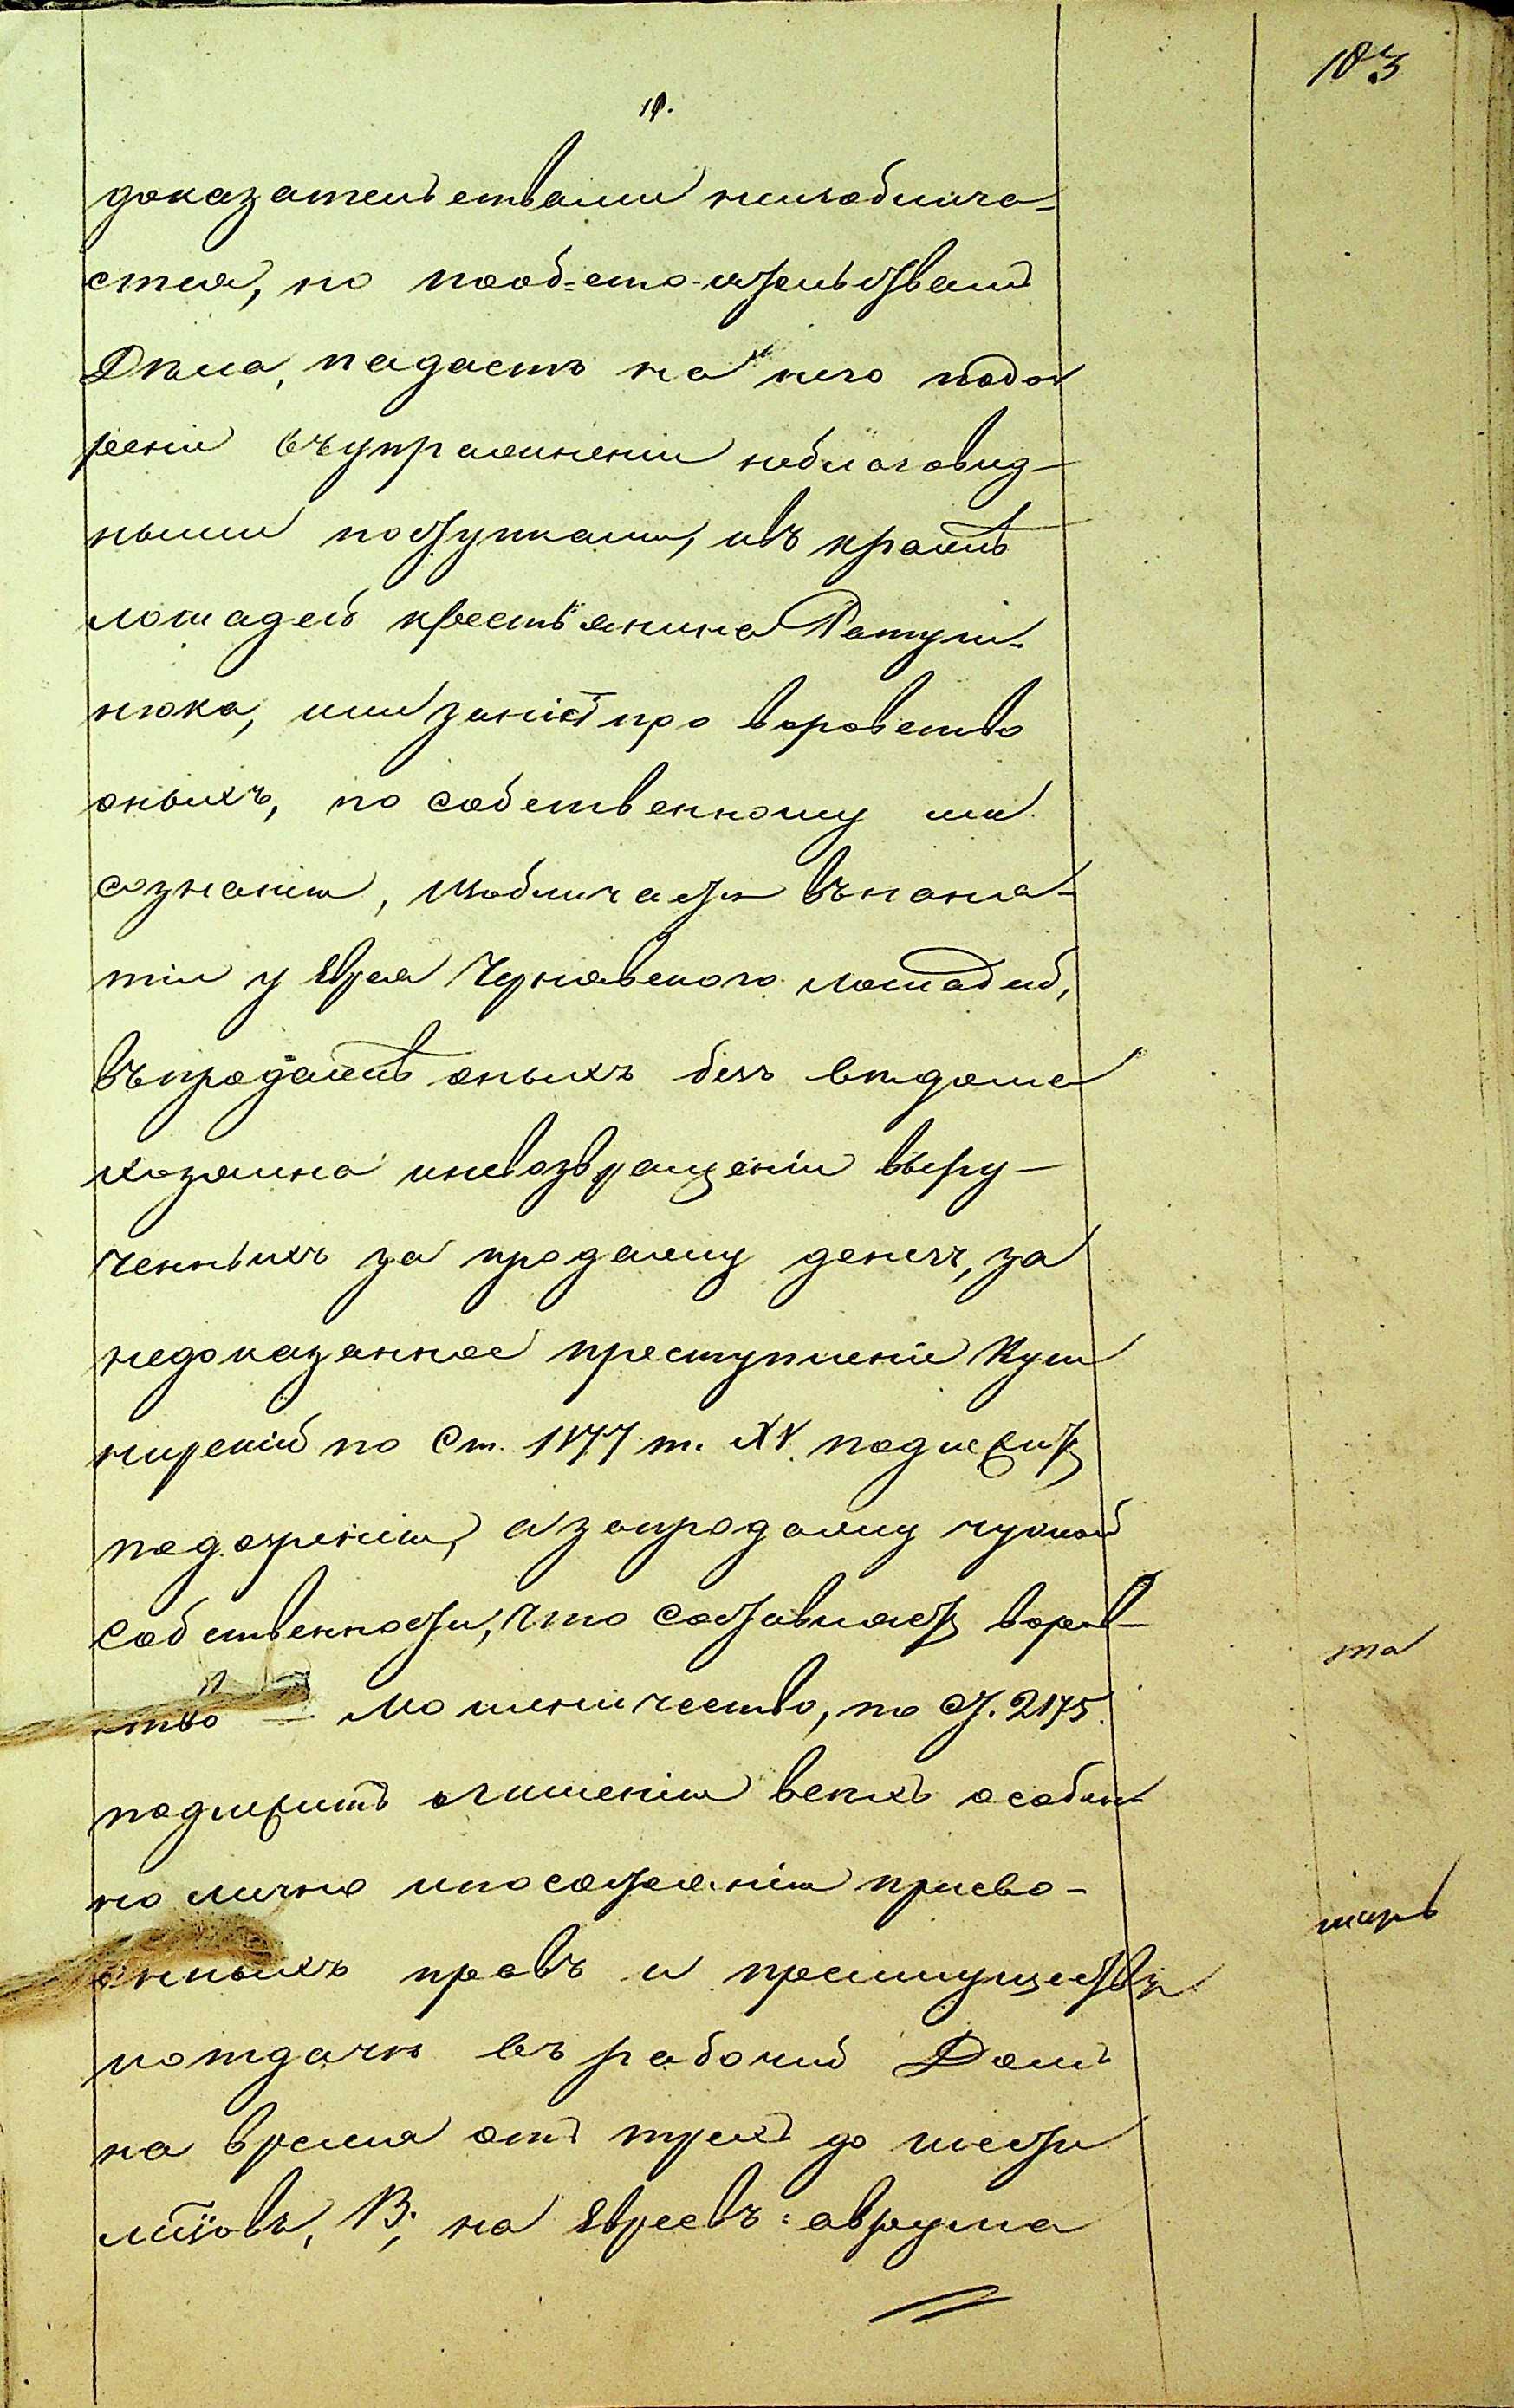 183
10.
доказательствами неизоблича-
ется, но пооб-сто-ятельствамъ
Дѣла, падаетъ на него подо
рѣніе въ упражненіи неблаговид-
ными поступками, и въ кражѣ
лошадей крестьянина Ратуш-
нюка, или знаніи про воровство
оныхъ, по собственному же
сознанію, изобличается въ наня-
тіи у Еврея Чернявского лошадей,
въ продажѣ оныхъ безъ вѣдома
хозяина и невозвращеніи выру-
ченныхъ за продажу денегъ, за
недоказанное преступленіе Куш
нирскій по Ст. 1177 т. XV. подлежитъ
подозрѣнію, а за продажу чужой
собственности, что составляетъ воров-
ство – мошенничество, по ст. 2175.
подлежитъ лишенію всѣхъ особен-
но лично и по состоянію присво-
енныхъ правъ и преимуществъ
и отдачи въ рабочій Домъ
на время отъ трехъ до шести
мѣсяцовъ, В; на Евреевъ: Аврума